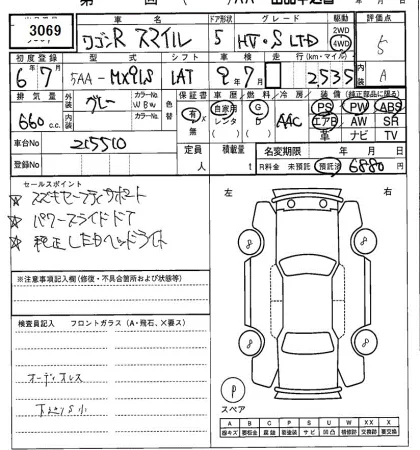 3069
車名 ドア形状 グレード 駆動 評価点
ワゴンR スマイル 5 HV・S LTD 2WD 4WD 5
初度登録 型式 シフト 車検 走行(km・マイル) 内装
6年7月 5AA-MX91S IAT 9年7月 2535 A
排気量 外装 カラーNo. 色替 カラーNo. 保証書 車歴 燃料 冷房 装備(純正部品に限る)
660c.c. グレー W B W 有・無 自家用 レンタ G D AAC PS PW ABS
エアB AW SR
革 ナビ TV
車台No 215510
定員 人 積載量 t 名変期限 年 月 日
登録No R料金 未預託 預託済 6880円
セールスポイント
★ スズキセーフティサポート
★ パワースライドドア
★ 純正LEDヘッドライト
左 右
※注意事項記入欄(修復・不具合箇所および状態等)
検査員記入 フロントガラス(A・飛石、×要ス)
オーディオレス
下廻りS小
P
スペア
A B C P S U W X XX
線キズ 要板金 腐蝕 要塗装 サビ 凹凸 補修跡 要交換 交換跡